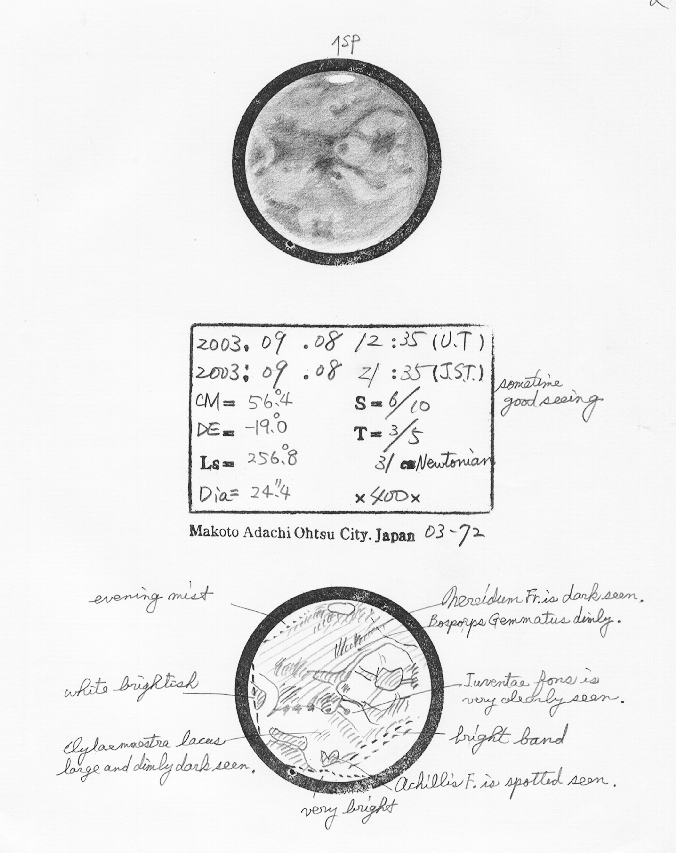 ↑SP
2003. 09 .08 12 :35 (U.T)
2003: 09 .08 21 :35 (J.S.T.)
CM= 56°.4 S=6/10
DE= -19.°0 T=3/5
Ls= 256.°8 31 cm Newtonian
Dia= 24.″4 ×400×
sometime
good seeing
Makoto Adachi Ohtsu City. Japan 03-72
evening mist
Nereidum Fr. is dark seen.
Bosporps Gemmatus dimly.
white brightish
Iuventae fons is
very clearly seen.
lacus
large and dimly dark seen.
bright band
Achillis F. is spotted seen.
very bright